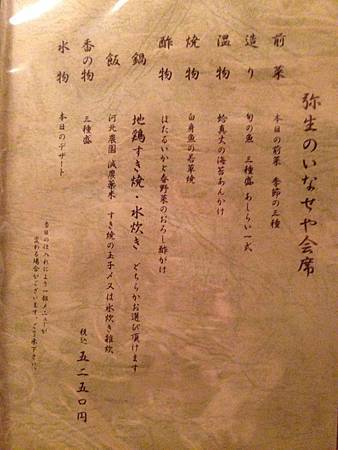 弥生のいなせや会席
前菜 本日の前菜 季節の三種
造り 旬の魚 三種盛 あしらい一式
温物 蛤真丈の海苔あんかけ
焼物 白身魚の若草焼
酢物 ほたるいかと春野菜のおろし酢がけ
鍋 地鶏すき焼・水炊き どちらかお選び頂けます
飯 河北農園 減農薬米 すき焼の玉子〆又は水炊き雑炊
香の物 三種盛
水物 本日のデザート
税込 五二五〇円
当日の仕入れにより一部メニューが
変わる場合がございます。ご了承下さい。